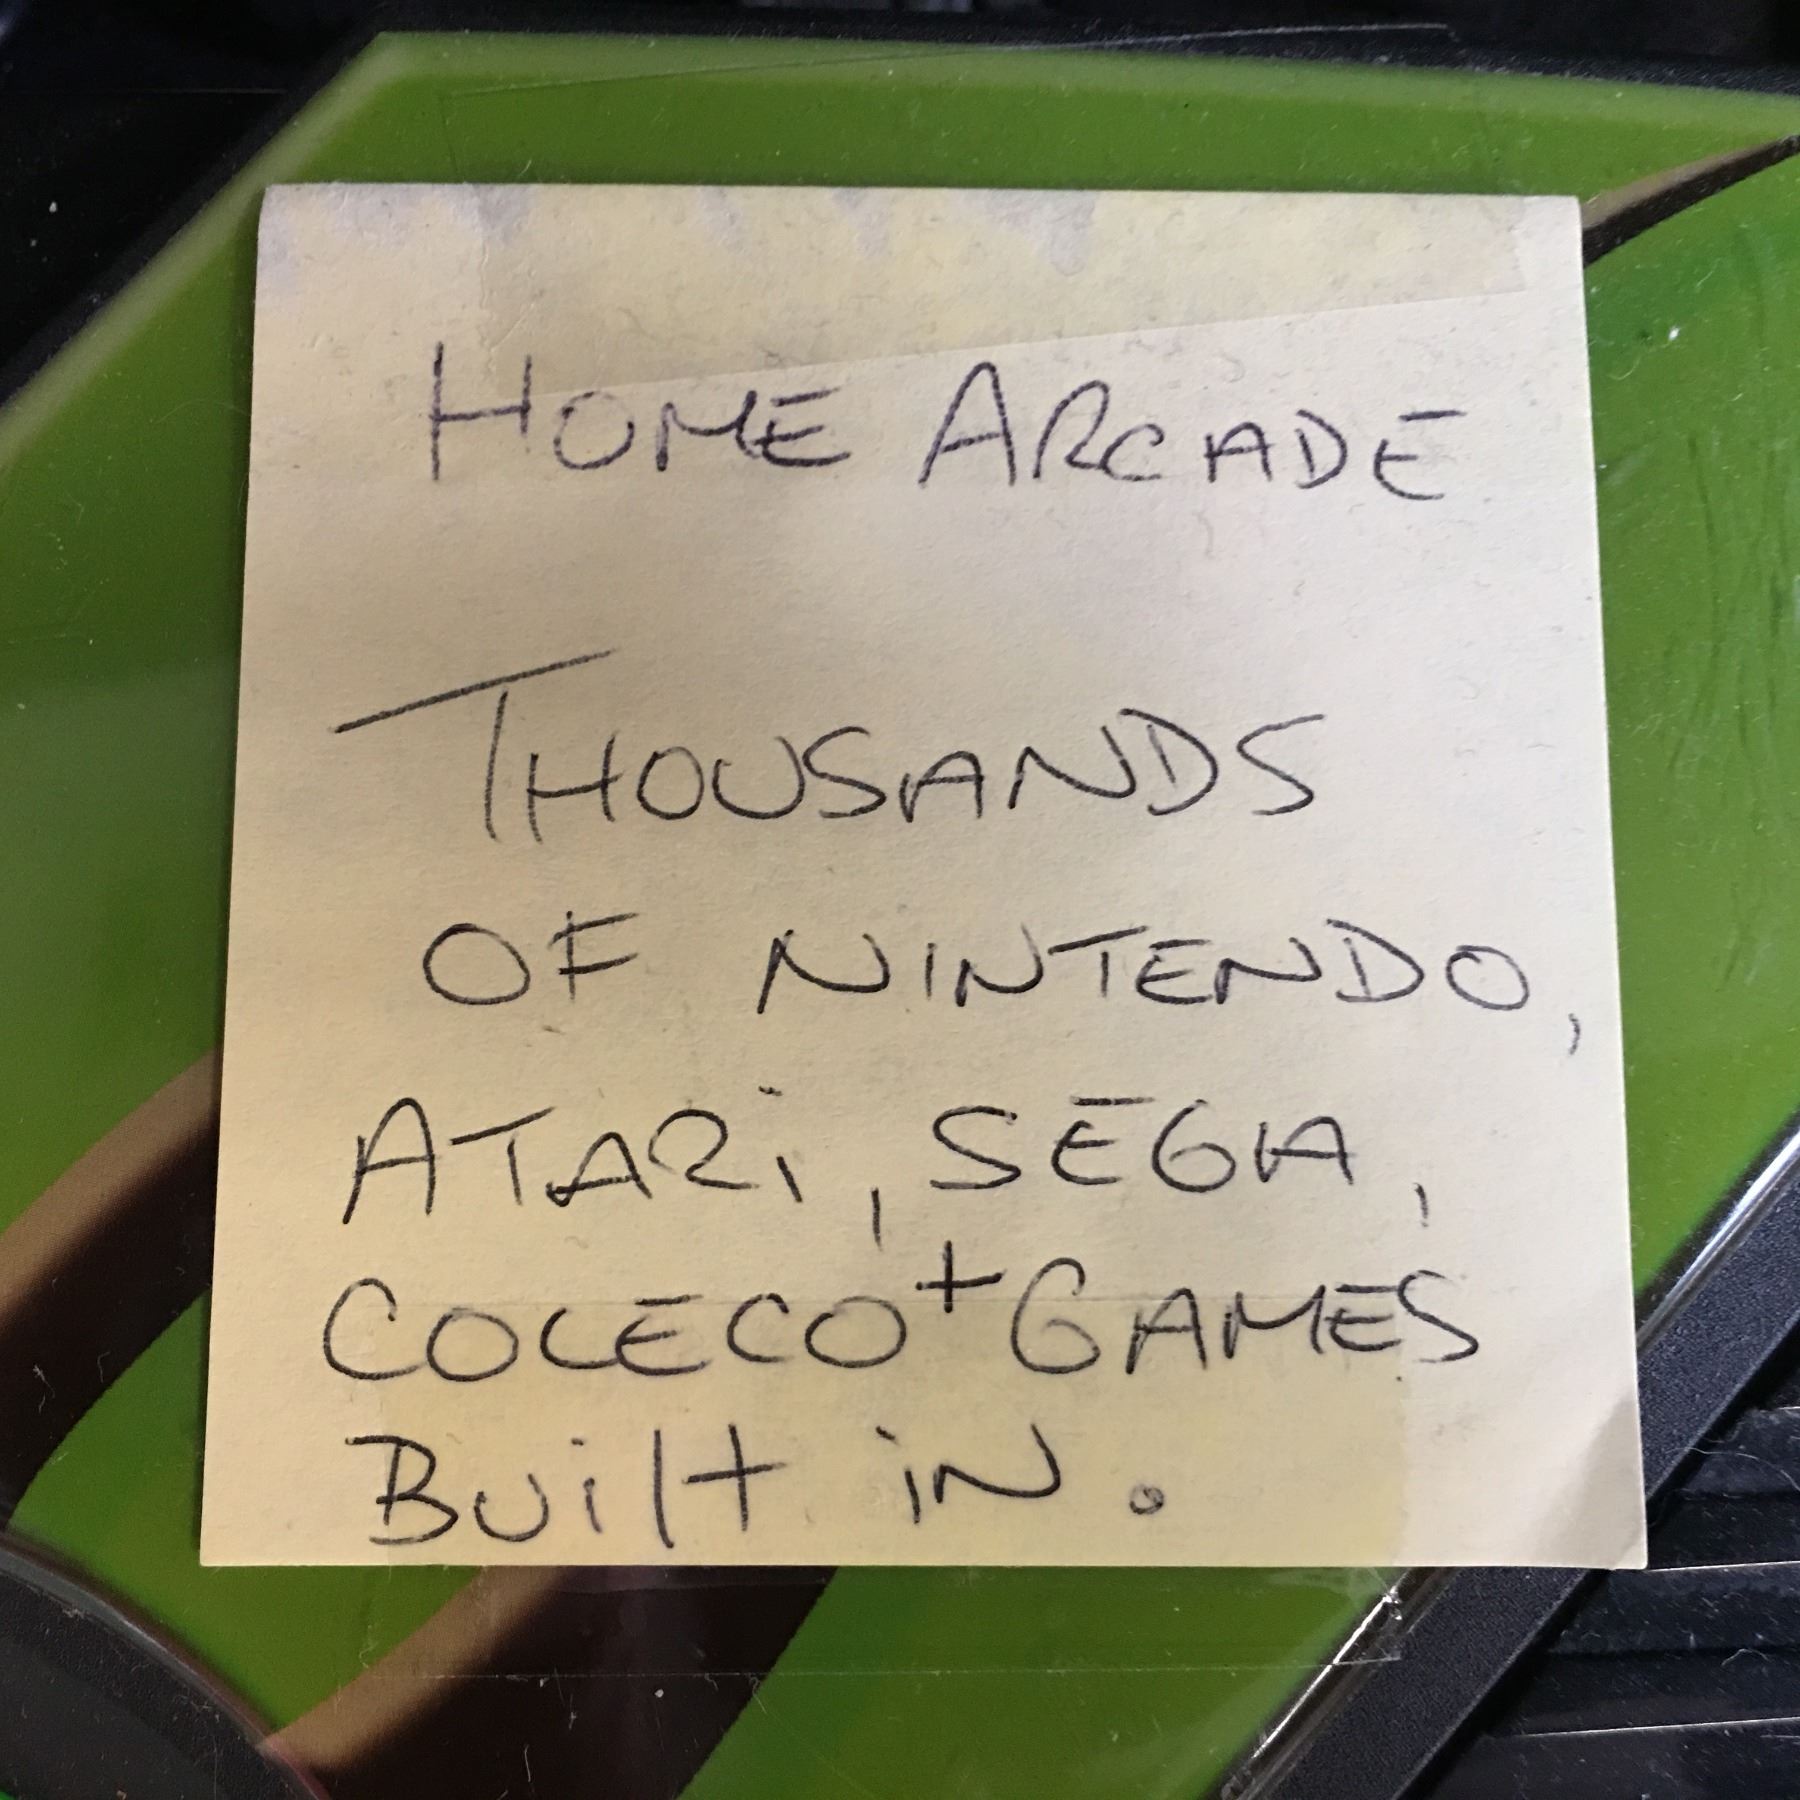 HOME ARCADE
THOUSANDS
OF NINTENDO,
ATARi, SEGA,
COLECO + GAMES
BuiLt iN.